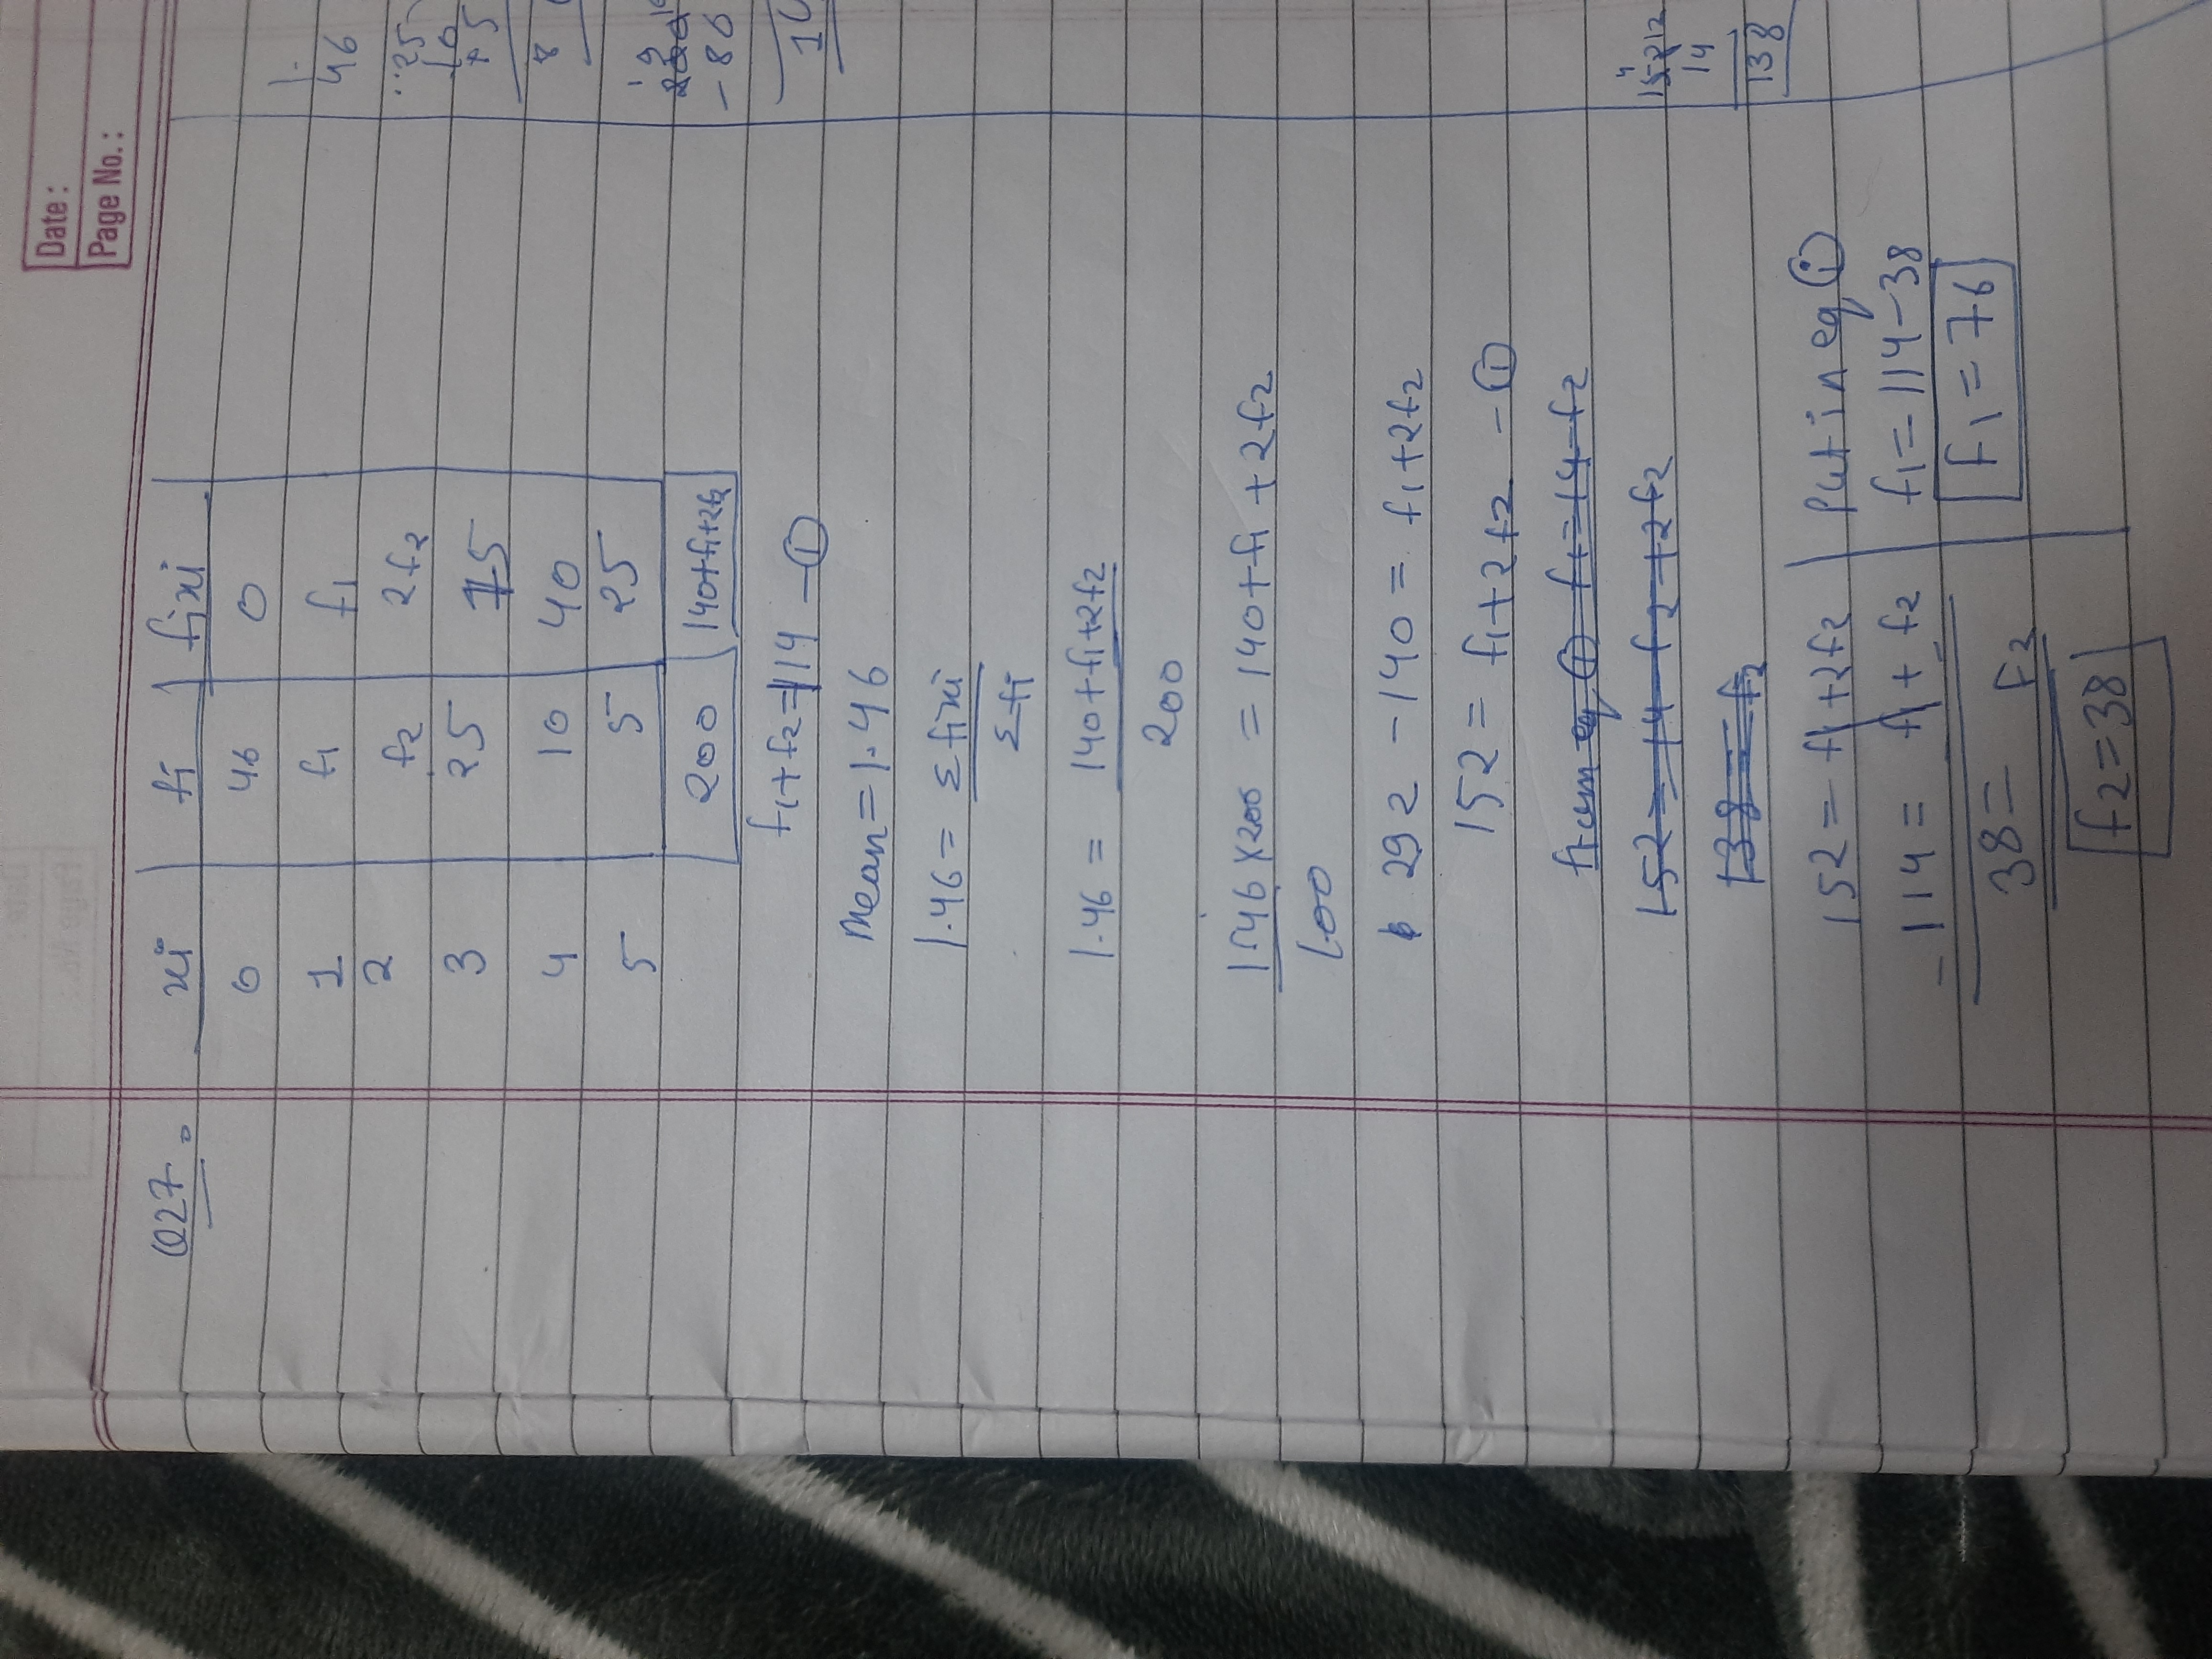 Date :
Page No. :
Q27.
xi fi fixi
0 46 0
1 f1 f1
2 f2 2f2
3 25 75
4 10 40
5 5 25
200 140+f1+2f2
f1+f2=114 -①
Mean=1.46
1.46 = Σfixi
Σfi
1.46 = 140+f1+2f2
200
1.46 x 200 = 140+f1+2f2
100
292-140 = f1+2f2
152 = f1+2f2 -①
from eq ① f1=14-f2
152=14-f2+2f2
138=f2
152 = f1+2f2
-114 = f1+f2
38= f2
f2=38
Put in eq ①
f1=114-38
f1=76
46
25
10
+5
8
200
-86
152
14
138